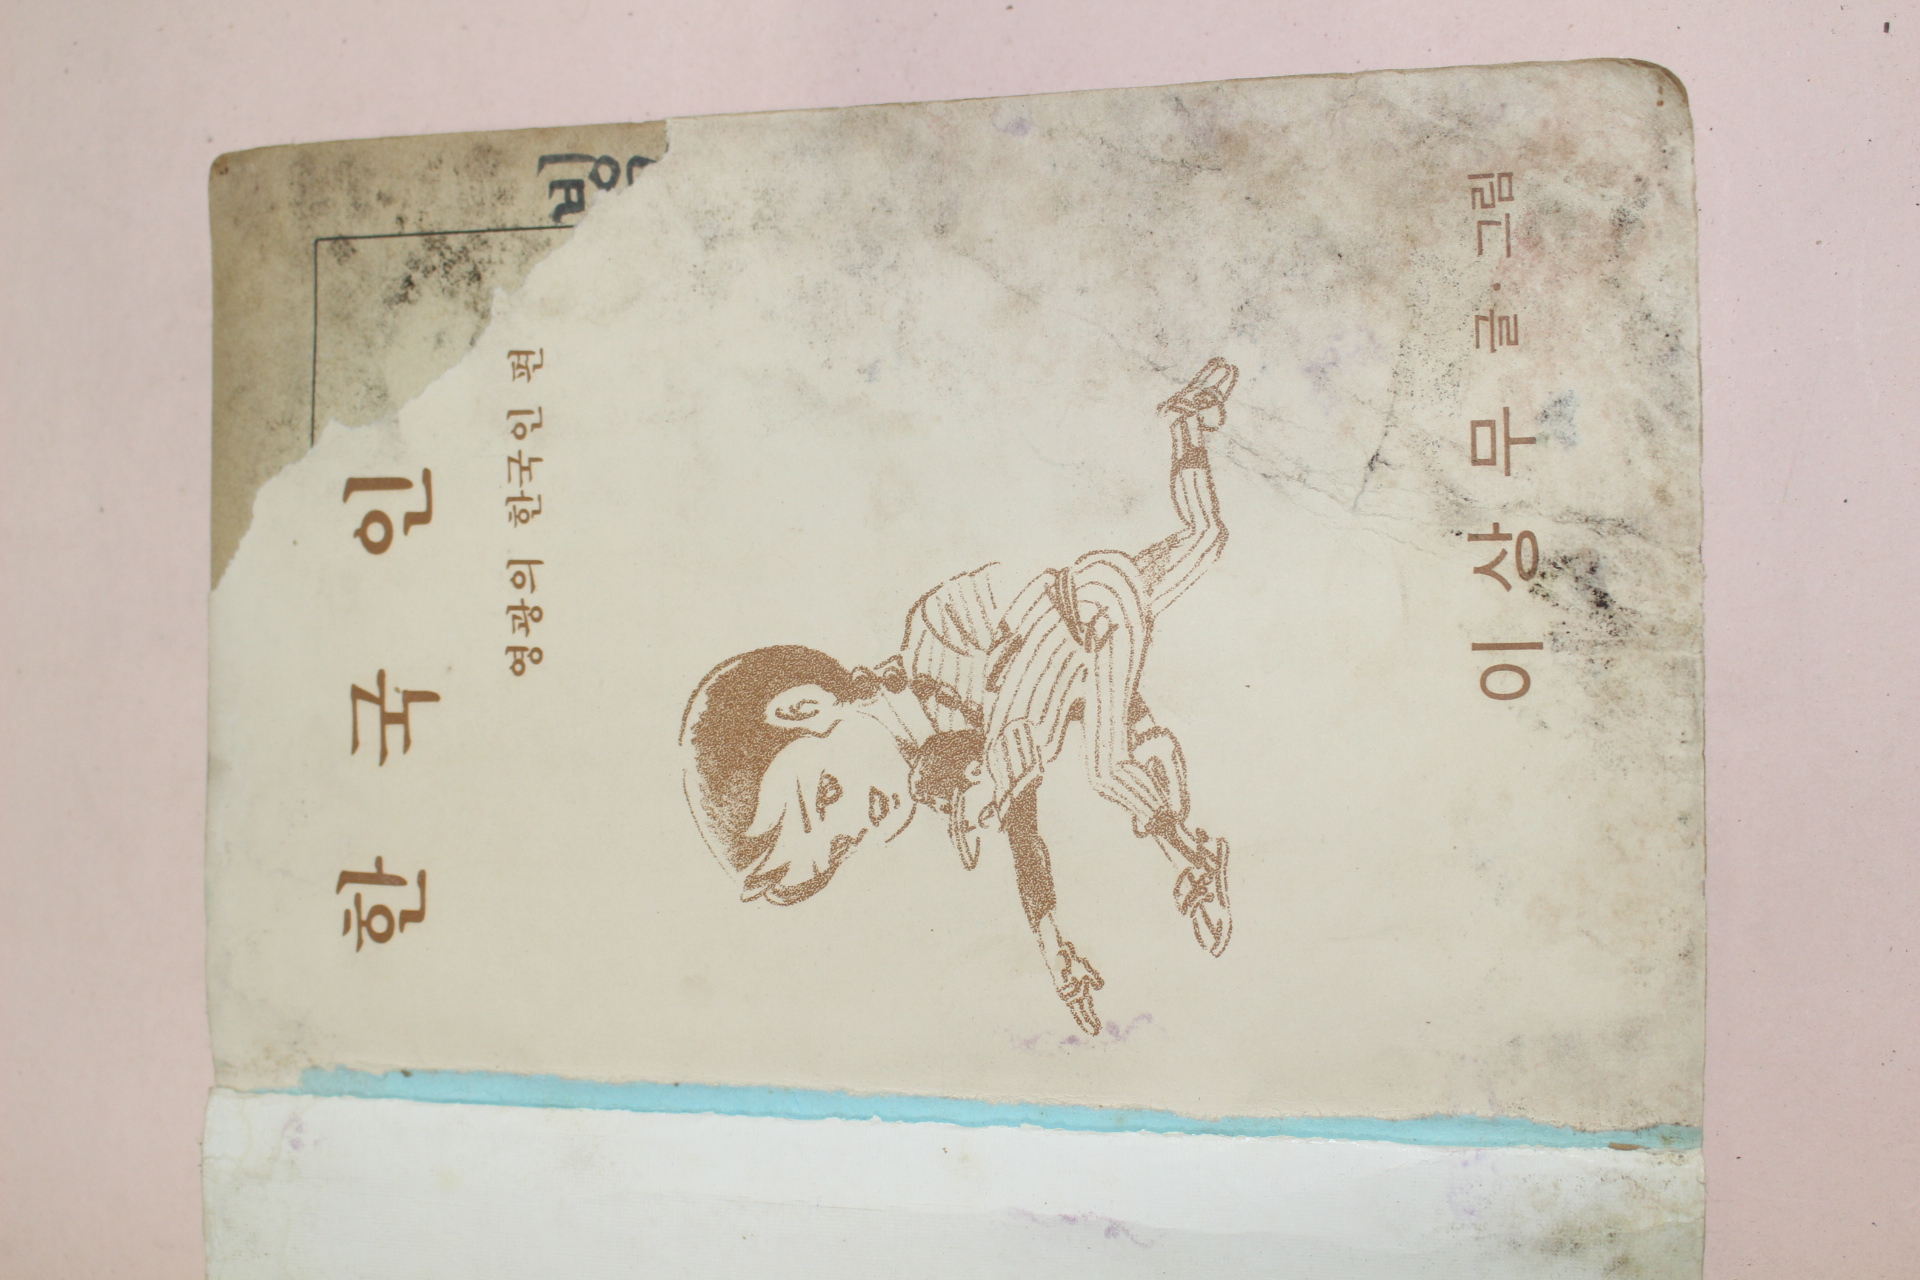 한국인
영광의 한국인 편
이상무 글·그림